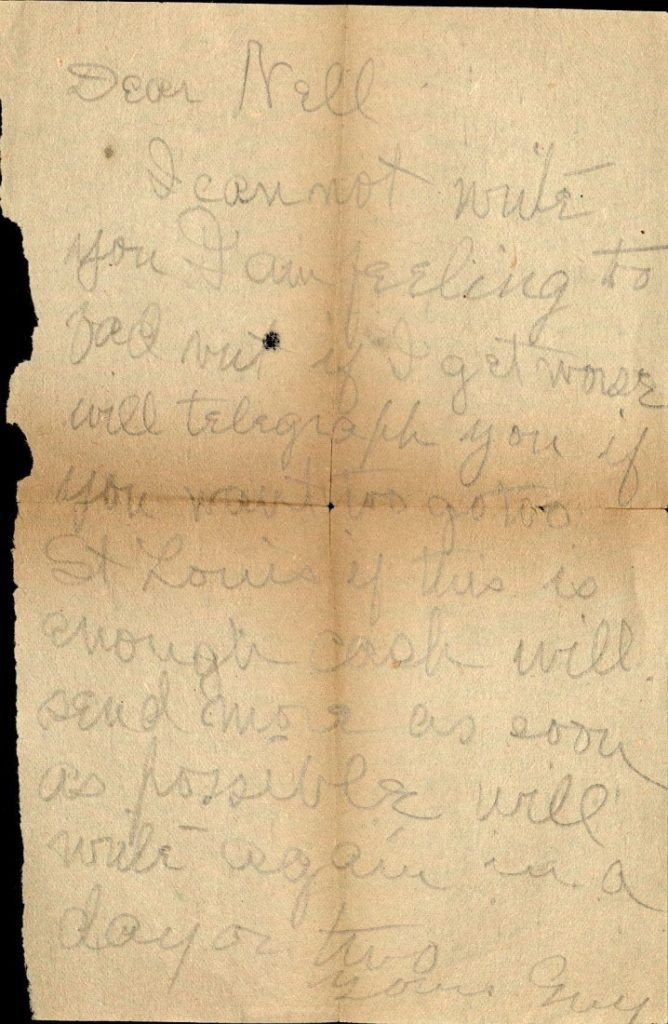 Dear Nell
I can not write
you I am feeling to
bad but if I get worse
will telegraph you if
you want too go too
St Louis if this is
enough cash will
send more as soon
as possible will
write again in a
day or two
Yours Guy